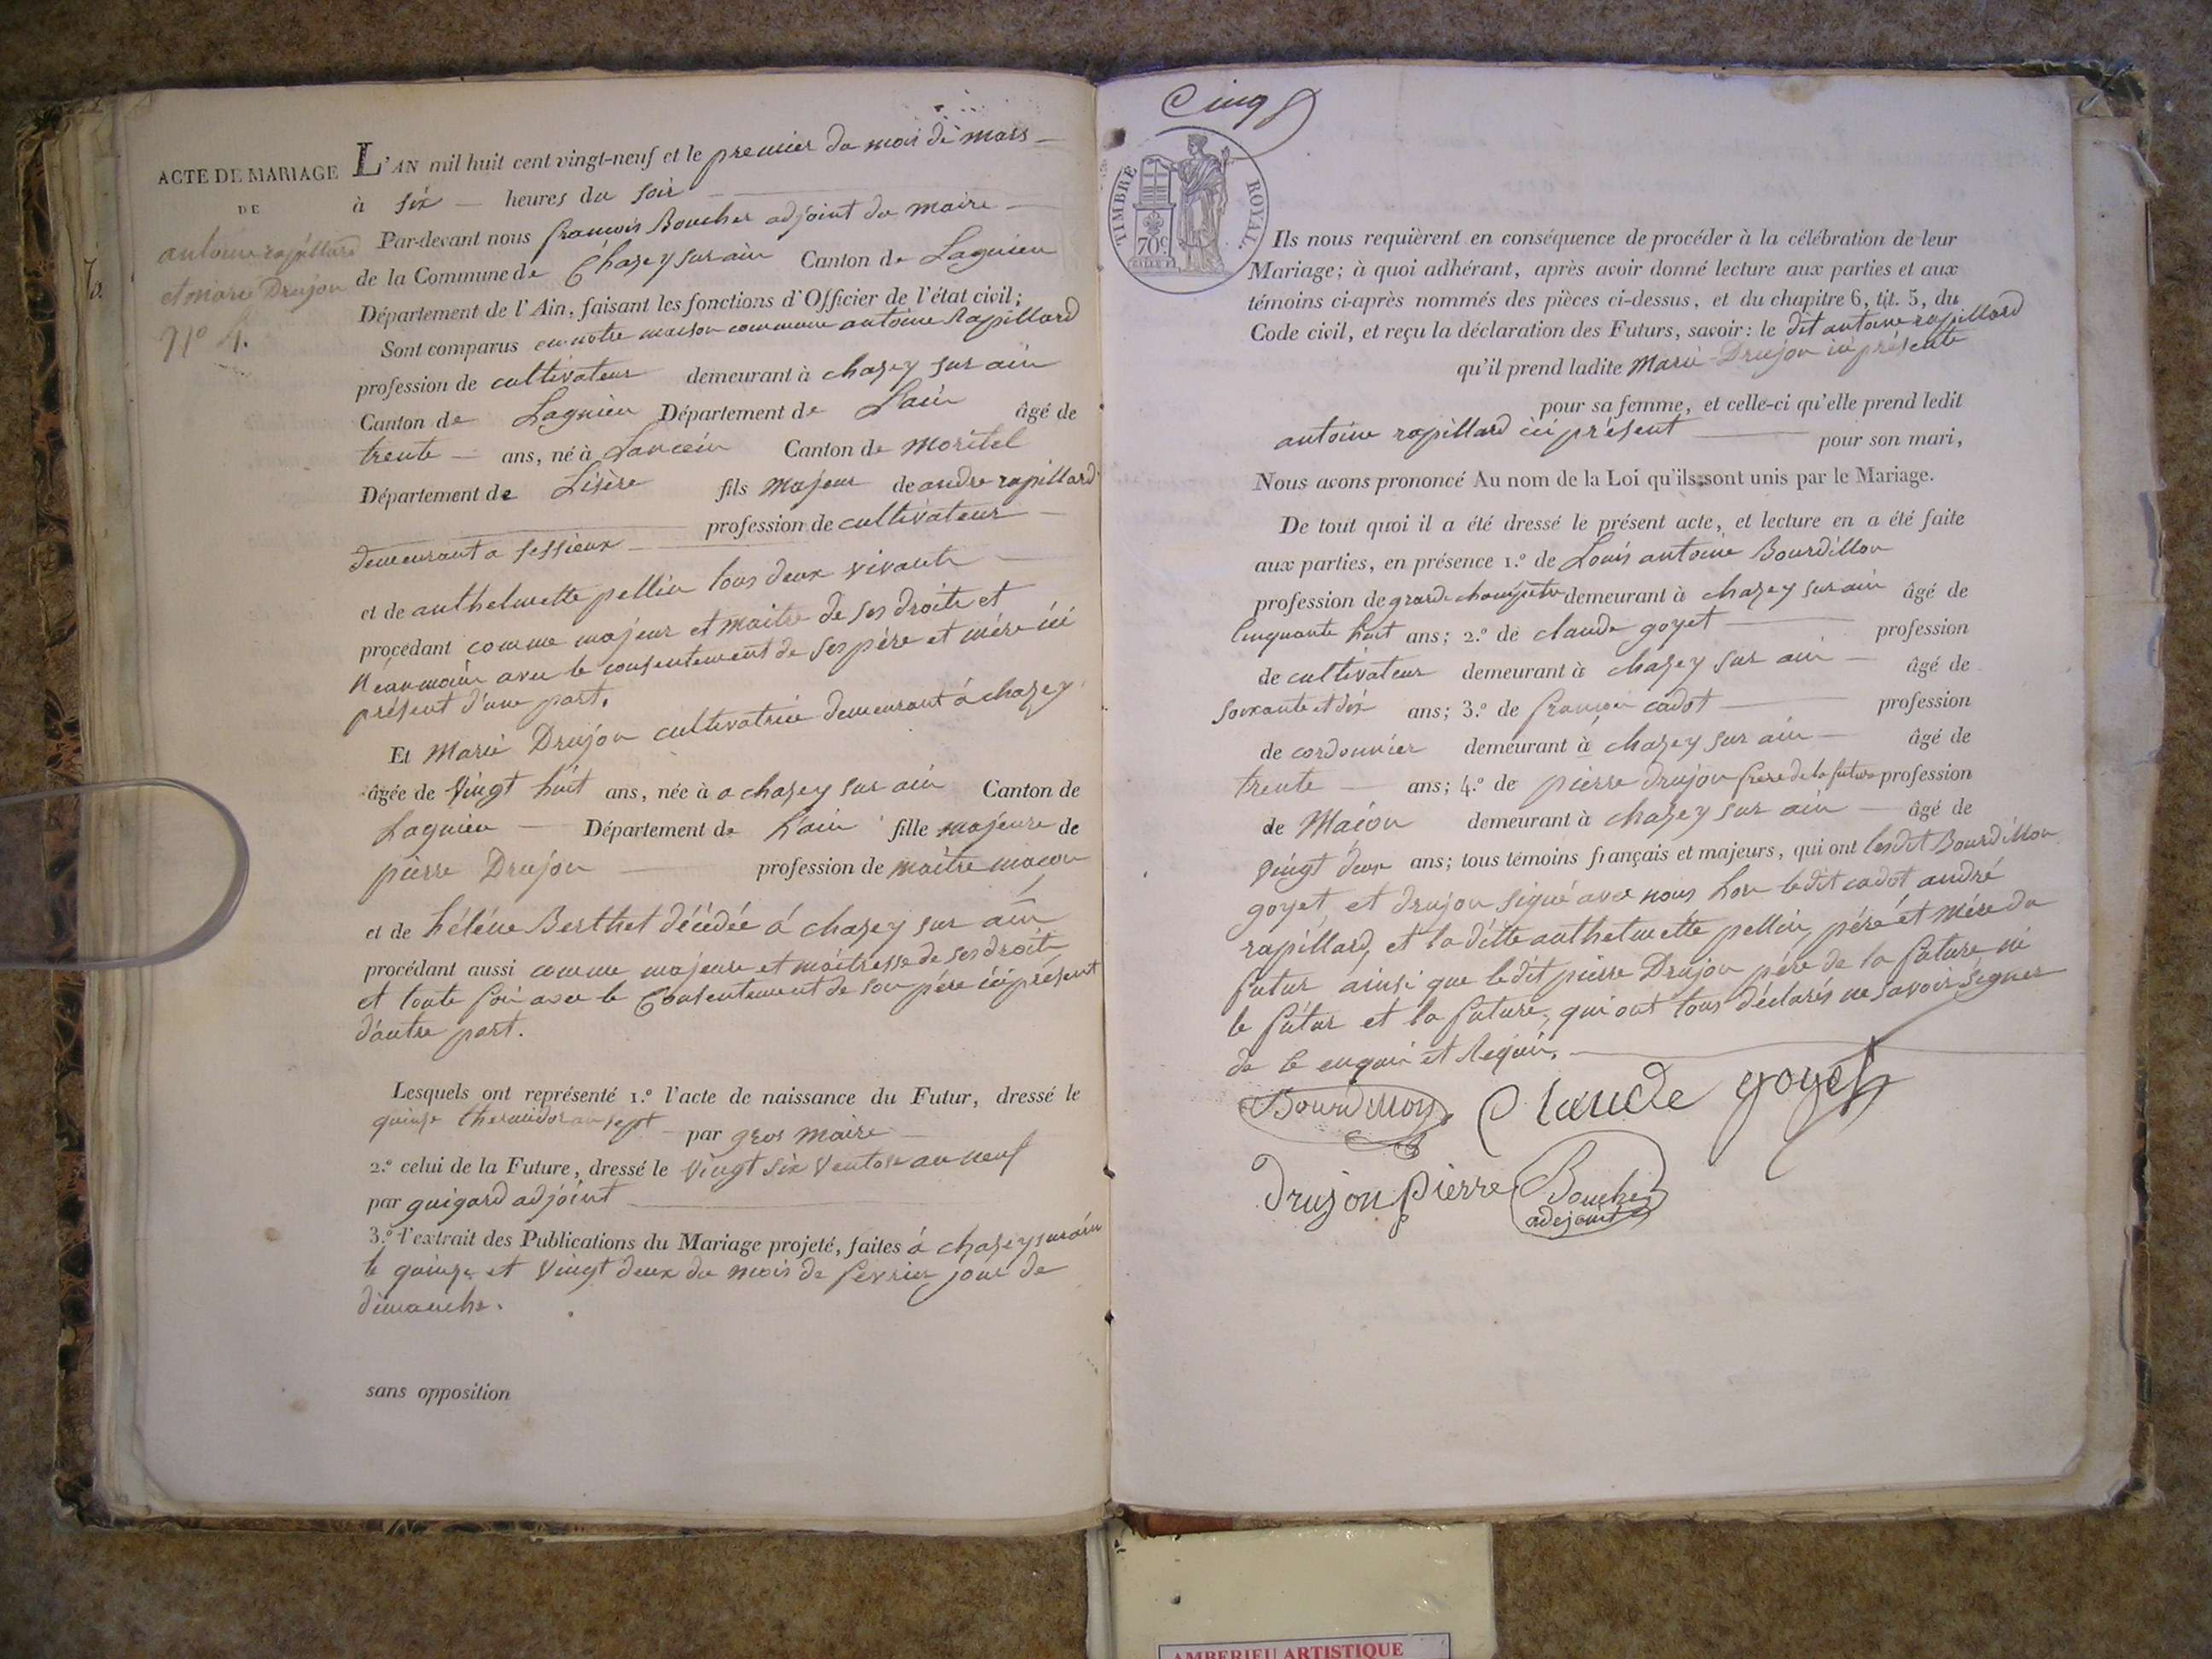 ACTE DE MARIAGE
DE
antoine rapillard
et marie Drujon
N° 4.
L'AN mil huit cent vingt-neuf et le premier du mois de mars
à six heures du soir
Par-devant nous françois Boucher adjoint du maire
de la Commune de Chazey sur ain Canton de Lagnieu
Département de l'Ain, faisant les fonctions d'Officier de l'état civil;
Sont comparus en notre maison commune antoine Rapillard
profession de cultivateur demeurant à chazey sur ain
Canton de Lagnieu Département de L'ain âgé de
trente ans, né à Canton de Moritel
Département de Lisère fils majeur de andre rapillard
profession de cultivateur
demeurant a sessieux
et de anthelmette pellin tous deux vivants
procédant comme majeur et maitre de ses droits et
Neanmoins avec le consentement de ses père et mère ici
présent d'une part.
Et Marie Drujon cultivatrice demeurant à chazey
âgée de vingt huit ans, née à a chazey sur ain Canton de
Lagnieu Département de L'ain fille majeure de
pierre Drujon profession de maitre maçon
et de héléne Berthet décédée á chazey sur ain
procédant aussi comme majeure et maitresse de ses droits
et toute fois avec le Consentement de son père ici présent
d'autre part.
Lesquels ont représenté 1.° l'acte de naissance du Futur, dressé le
quinze thermidor an sept par gros maire
2.° celui de la Future, dressé le vingt six ventose an neuf
par guigard adjoint
3.° l'extrait des Publications du Mariage projeté, faites á chazey sur ain
le quinze et vingt deux du mois de fevrier jour de
dimanche.
sans opposition
Cinq
TIMBRE ROYAL.
70 c.
Ils nous requièrent en conséquence de procéder à la célébration de leur
Mariage; à quoi adhérant, après avoir donné lecture aux parties et aux
témoins ci-après nommés des pièces ci-dessus, et du chapitre 6, tit. 5, du
Code civil, et reçu la déclaration des Futurs, savoir: le dit antoine rapillard
qu'il prend ladite Marie Drujon ici présente
pour sa femme, et celle-ci qu'elle prend ledit
antoine rapillard ici présent pour son mari,
Nous avons prononcé Au nom de la Loi qu'ils sont unis par le Mariage.
De tout quoi il a été dressé le présent acte, et lecture en a été faite
aux parties, en présence 1.° de Louis antoine Bourdillon
profession de garde champêtre demeurant à chazey sur ain âgé de
Cinquante huit ans; 2.° de claude goyet profession
de cultivateur demeurant à chazey sur ain âgé de
soixante et dix ans; 3.° de françois cadot profession
de cordonnier demeurant à chazey sur ain âgé de
trente ans; 4.° de pierre drujon frere de la future profession
de Maçon demeurant à chazey sur ain âgé de
vingt deux ans; tous témoins français et majeurs, qui ont lesdit Bourdillon
goyet et drujon signé avec nous non ledit cadot andré
rapillard, et la ditte anthelmette pellin, péré et mére du
futur ainsi que ledit pierre Drujon pére de la future, ni
le futur et la future, qui ont tous déclarés ne savoir signer
de ce enquis et Requis.
Bourdillon Claude goyet
drujon pierre Boucher
adejoint
AMBERIEU ARTISTIQUE